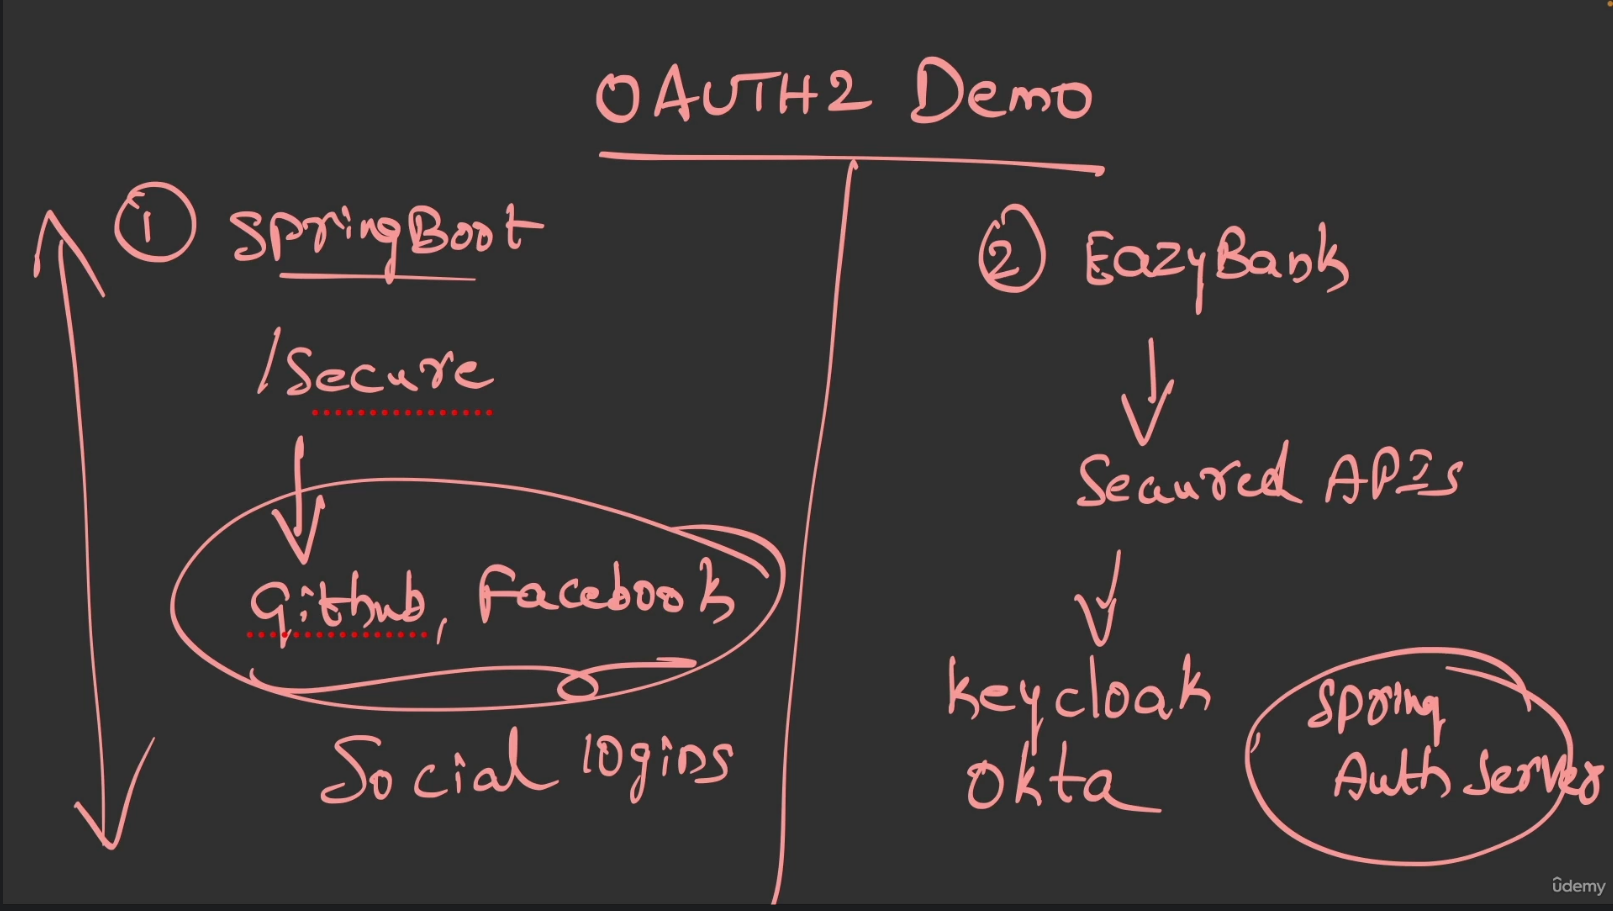 OAUTH2 Demo
1 SpringBoot
/Secure
Github, Facebook
Social logins
2 EazyBank
Secured APIs
Keycloak
Okta
Spring
Auth Server
ûdemy